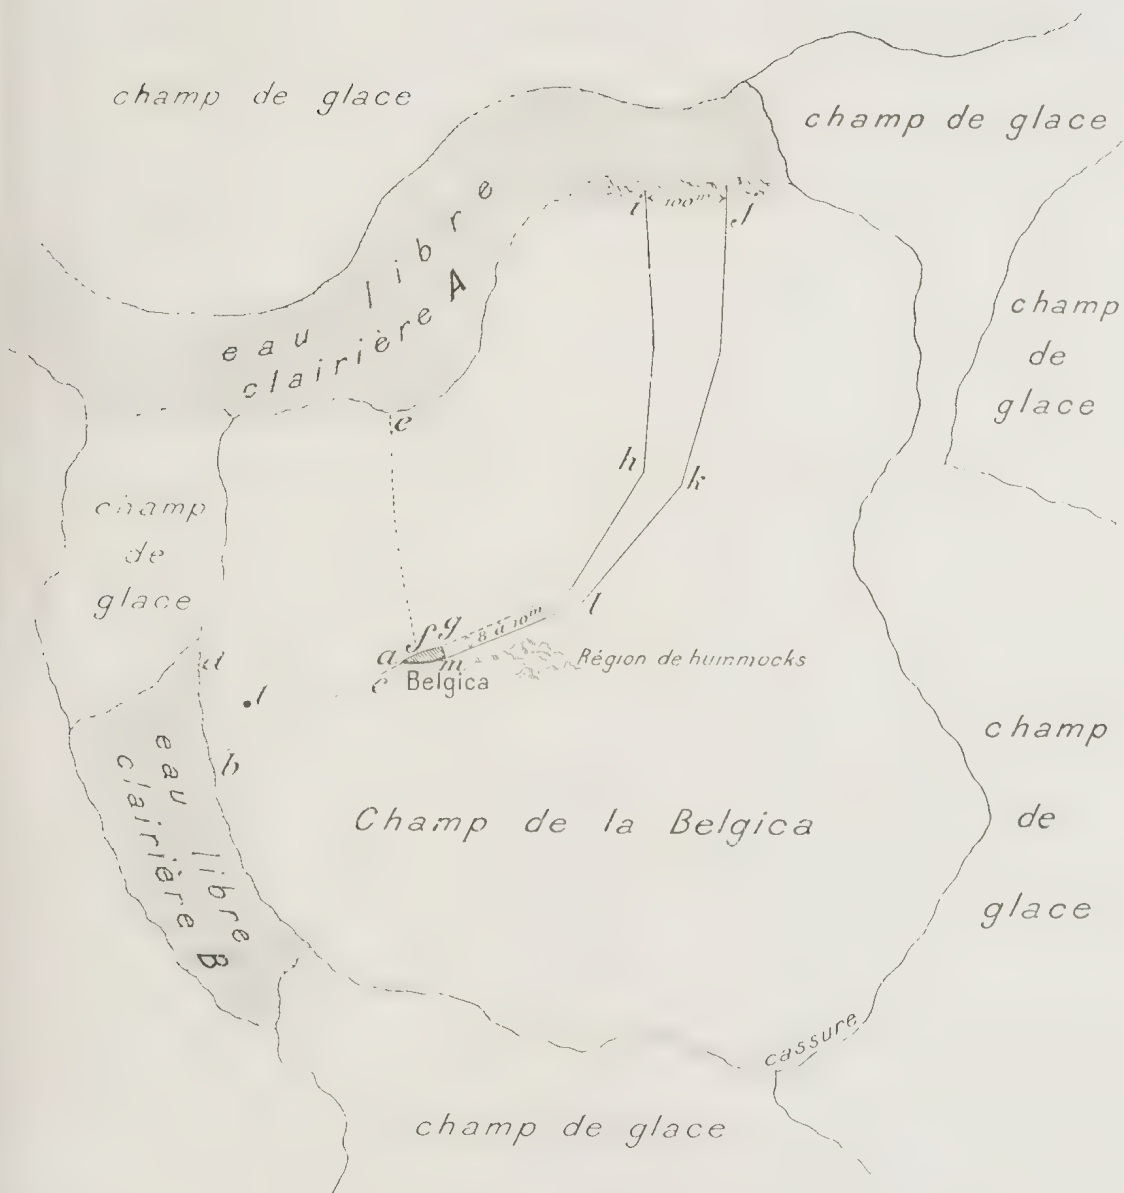 champ de glace
champ de glace
eau libre
clairière A
i
100ᵐ
j
champ
de
glace
e
h
k
champ
de
glace
l
f g
8 à 10ᵐ
a
m
c
Belgica
Région de hummocks
d
b
eau libre
clairière B
Champ de la Belgica
champ
de
glace
cassure
champ de glace